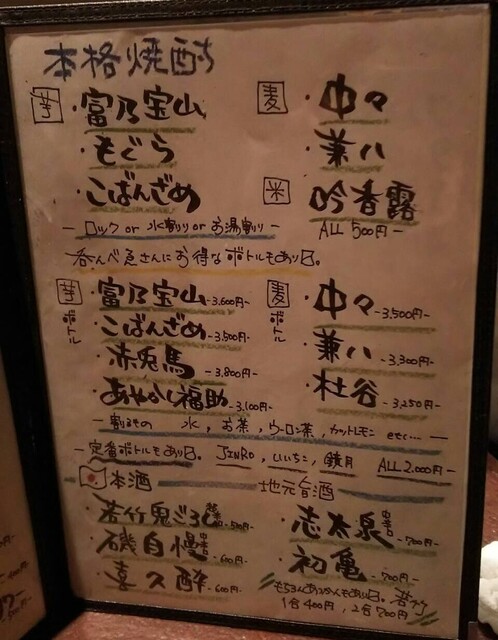 本格焼酎
芋 ・富乃宝山
・もぐら
・こばんざめ
麦 ・中々
・兼八
米 吟香露
ALL 500円-
-ロック or 水割り or お湯割り-
呑んべえさんにお得なボトルもあり〼。
芋ボトル ・富乃宝山 -3,600円-
・こばんざめ -3,500円-
・赤兎馬 -3,800円-
・あやかし福助 -3,100円-
麦ボトル ・中々 -3,500円-
・兼八 -3,300円-
・杜谷 -3,250円-
-割るもの 水, お茶, ウーロン茶, カットレモン etc...-
-定番ボトルもあり〼。 JINRO, いいちこ, 鏡月 ALL 2,000円-
本酒 地元旨酒
・若竹鬼ごろし -500円-
・磯自慢 -600円-
・喜久酔 -600円-
・志太泉 -700円-
・初亀 -700円-
もちろんあつかんもあり〼。若竹
1合400円, 2合700円